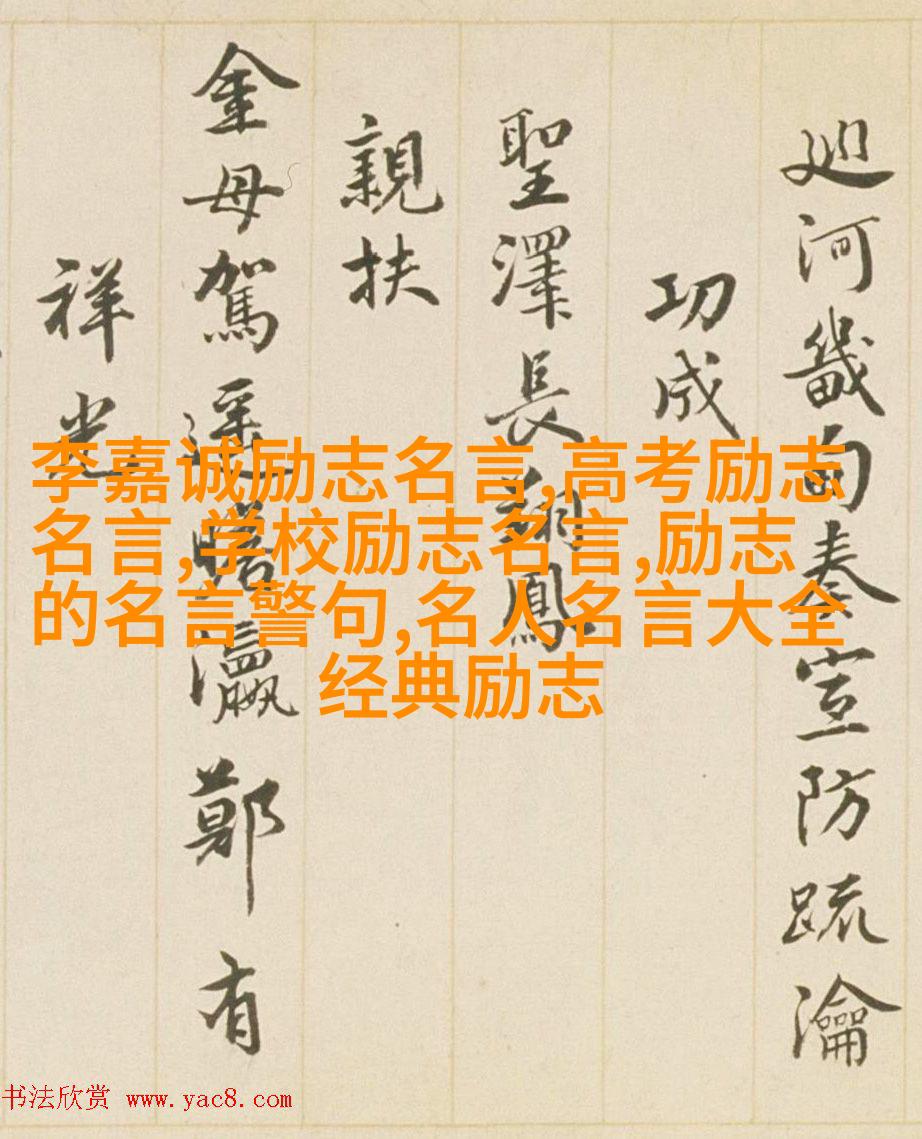 廵河畿向奏宣防疏瀹
功成
聖澤長翔鳳
親扶
金母駕遥瞻瀛鄚有
祥光
李嘉诚励志名言,高考励志
名言,学校励志名言,励志
的名言警句,名人名言大全
经典励志
书法欣赏 www.yac8.com